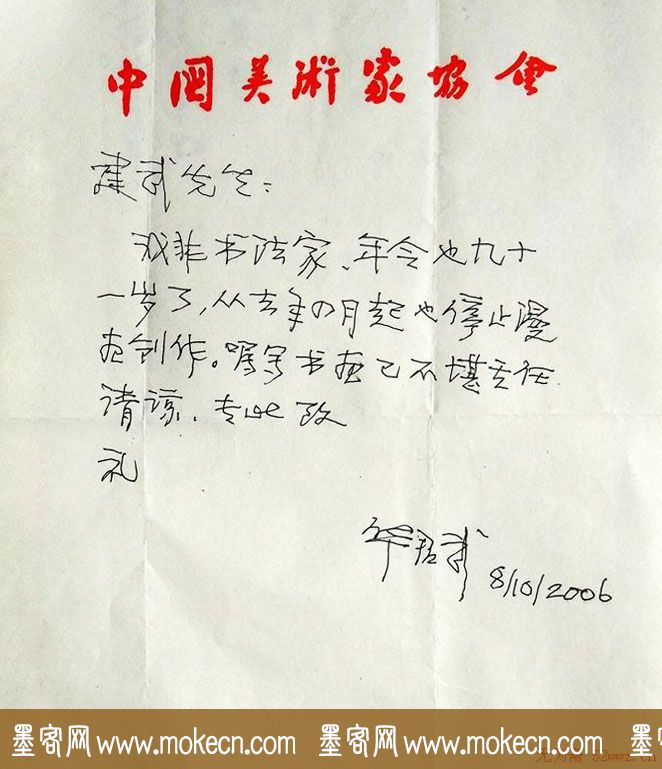 中国美術家協會
建武先生：
我非书法家、年令也九十
一岁了，从去年四月起也停止漫
画创作。嘱写书画已不堪重任
请谅、专此 致
礼
华君武
8/10/2006
墨客网 www.mokecn.com 墨客网 www.mokecn.com
52wwz.cn